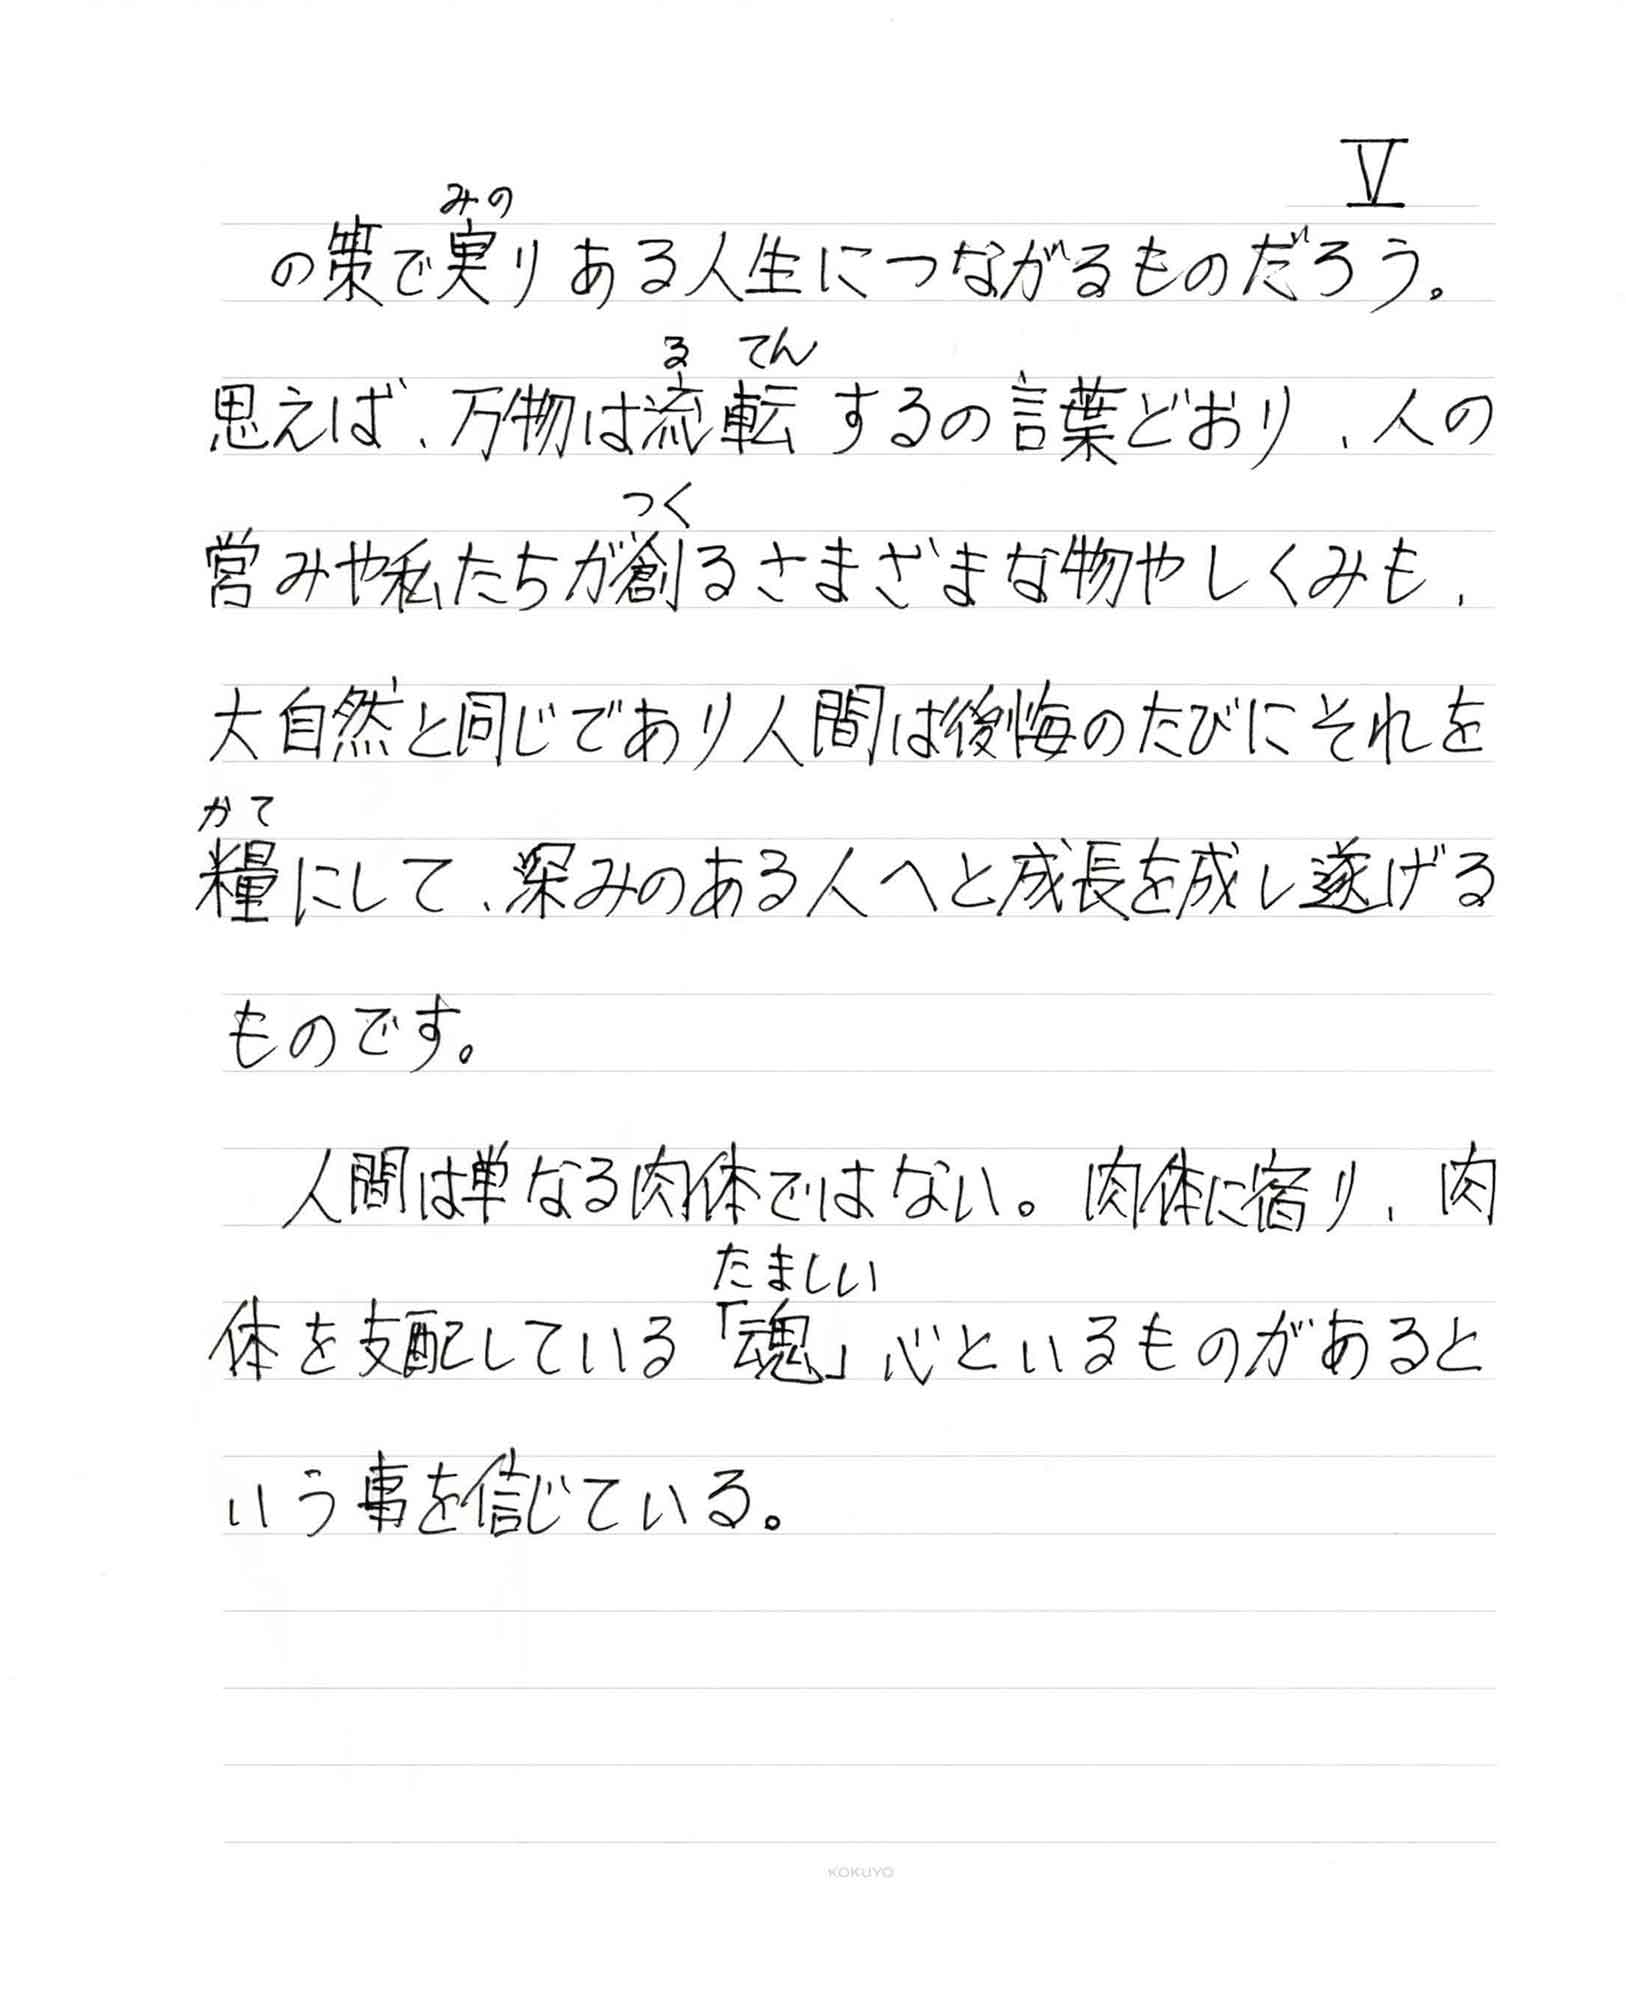 V
みの
の策で実りある人生につながるものだろう。
る てん
思えば、万物は流転するの言葉どおり、人の
つく
営みや私たちが創るさまざまな物やしくみも、
大自然と同じであり人間は後悔のたびにそれを
かて
糧にして、深みのある人へと成長を成し遂げる
ものです。
人間は単なる肉体ではない。肉体に宿り、肉
たましい
体を支配している「魂」心といるものがあると
いう事を信じている。
KOKUYO